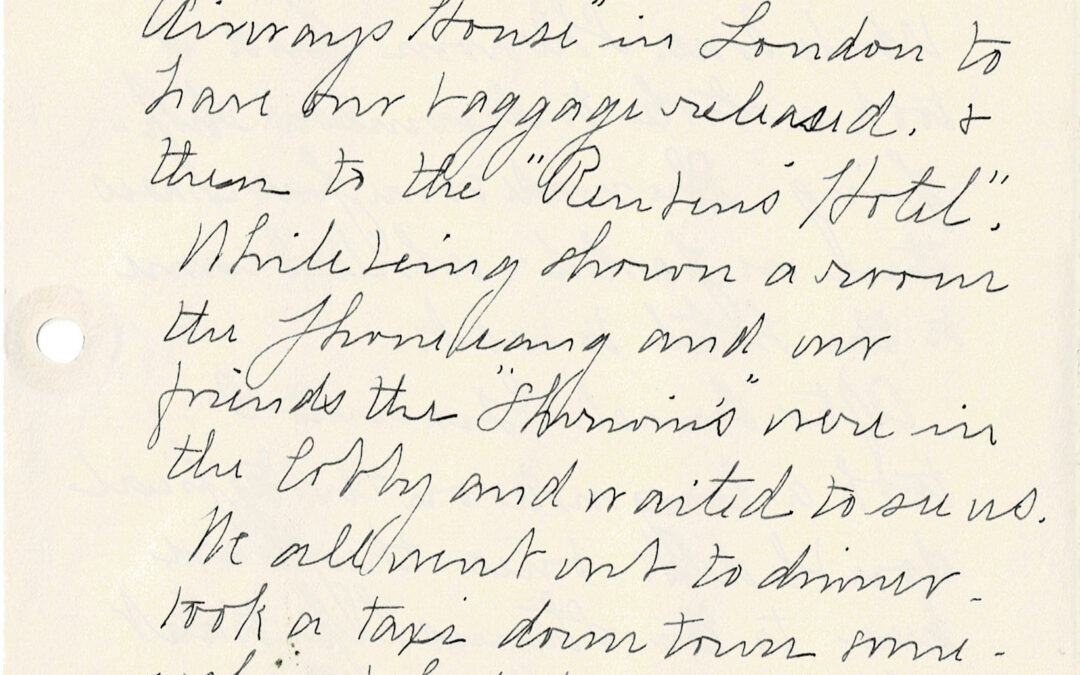 Airways House" in London to
have our baggage released. &
then to the "Rubens Hotel".
While being shown a room
the phone rang and our
friends the "Sherwin's" were in
the lobby and waited to see us.
We all went out to dinner -
took a taxi down town some -